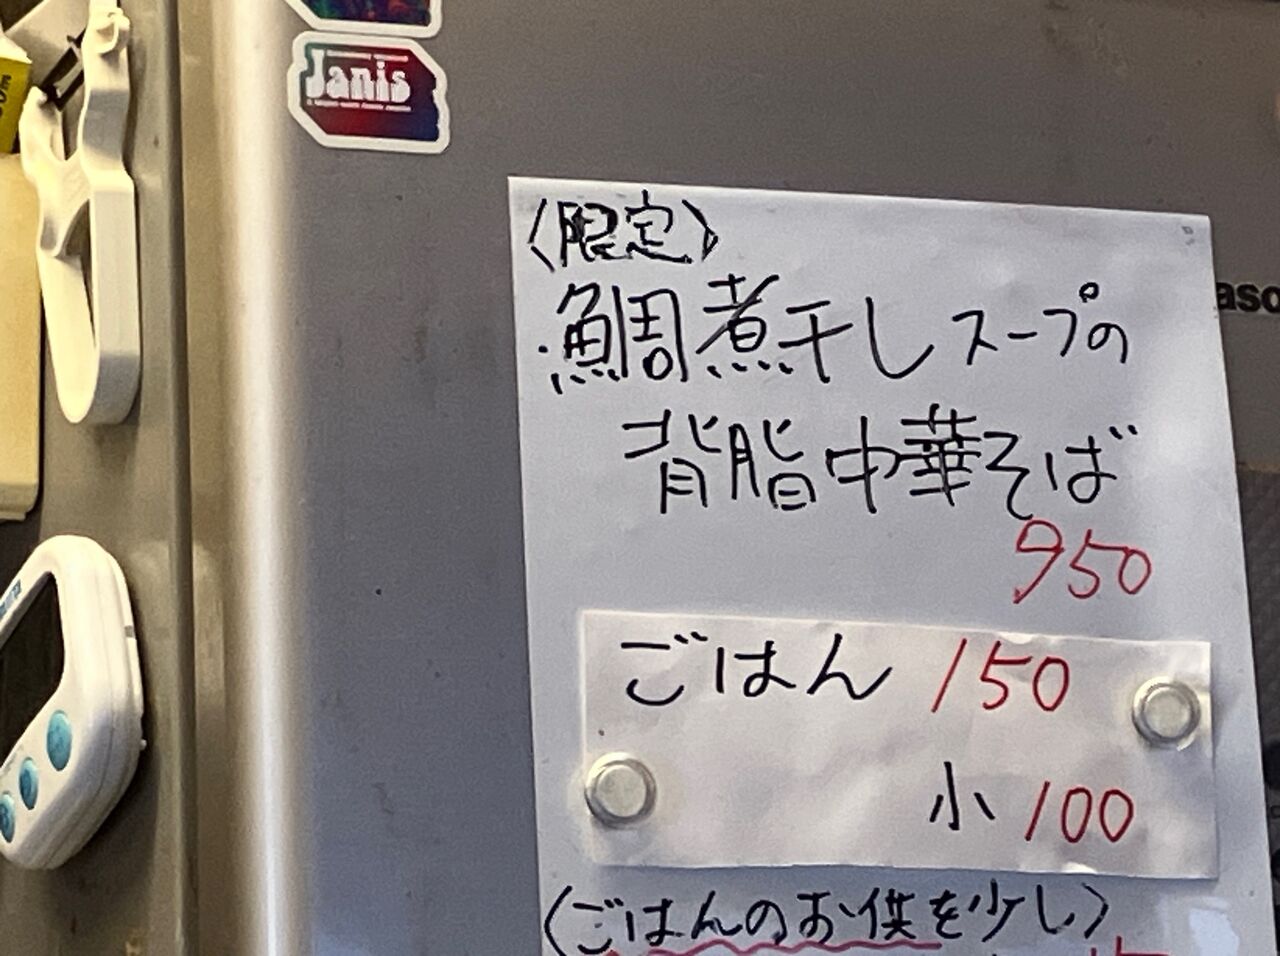 Janis
〈限定〉
・鯛煮干しスープの
背脂中華そば
950
ごはん 150
小 100
〈ごはんのお供を少し〉